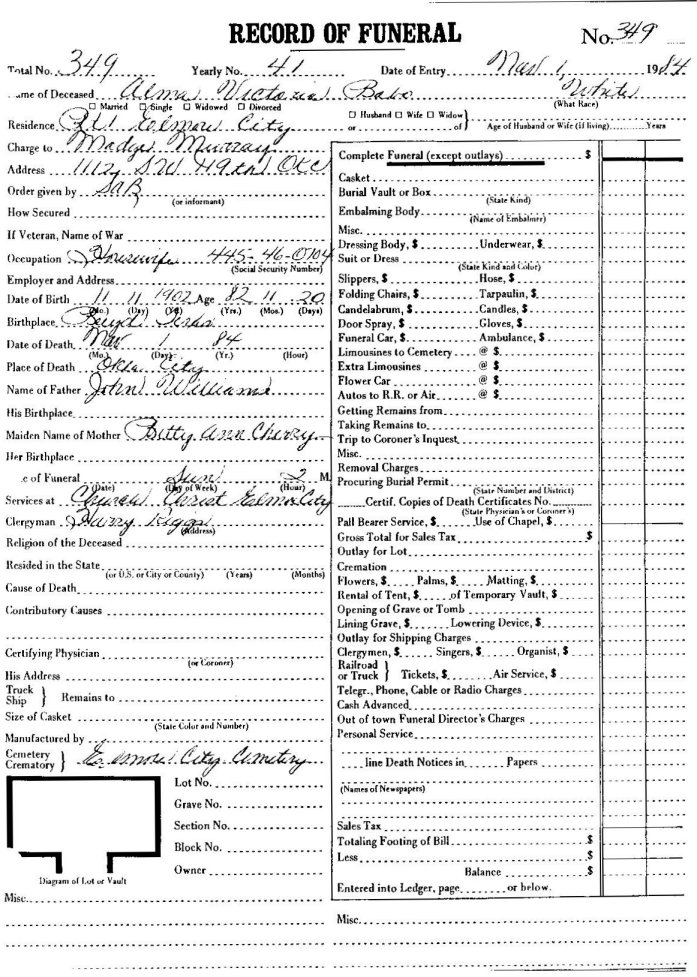 RECORD OF FUNERAL No. 349
Total No. 349 Yearly No. 41 Date of Entry Mar 1, 1984
me of Deceased Alma Victoria White
(What Race)
☐ Married ☐ Single ☐ Widowed ☐ Divorced ☐ Husband ☐ Wife ☐ Widow}
Residence Elmore City or of Age of Husband or Wife (if living) Years
Charge to Madge Murray
Address 1112 SW 49th OKC
Order given by
(or informant)
How Secured
If Veteran, Name of War
Occupation Housewife 445-46-0104
(Social Security Number)
Employer and Address
Date of Birth 11 11 1902 Age 82 11 20
(Mo.) (Day) (Yr.) (Yrs.) (Mos.) (Days)
Birthplace Texas
Date of Death Mar 1 84
(Mo.) (Day) (Yr.) (Hour)
Place of Death Okla City
Name of Father John Williams
His Birthplace
Maiden Name of Mother Bitty Ann Cherry
Her Birthplace
e of Funeral Sun 2 M.
(Date) (Day of Week) (Hour)
Services at Church Christ Elmore City
Clergyman Harry
(Address)
Religion of the Deceased
Resided in the State
(or U.S. or City or County) (Years) (Months)
Cause of Death
Contributory Causes
Certifying Physician
(or Coroner)
His Address
Truck
Ship } Remains to
Size of Casket
(State Color and Number)
Manufactured by
Cemetery
Crematory } Elmore City Cemetery
Lot No.
Grave No.
Section No.
Block No.
Owner
Diagram of Lot or Vault
Misc.
Complete Funeral (except outlays) $
Casket
Burial Vault or Box
(State Kind)
Embalming Body
(Name of Embalmer)
Misc.
Dressing Body, $ Underwear, $
Suit or Dress
(State Kind and Color)
Slippers, $ Hose, $
Folding Chairs, $ Tarpaulin, $
Candelabrum, $ Candles, $
Door Spray, $ Gloves, $
Funeral Car, $ Ambulance, $
Limousines to Cemetery @ $
Extra Limousines @ $
Flower Car @ $
Autos to R.R. or Air @ $
Getting Remains from
Taking Remains to
Trip to Coroner's Inquest
Misc.
Removal Charges
Procuring Burial Permit
(State Number and District)
Certif. Copies of Death Certificates No.
(State Physician's or Coroner's)
Pall Bearer Service, $ Use of Chapel, $
Gross Total for Sales Tax $
Outlay for Lot
Cremation
Flowers, $ Palms, $ Matting, $
Rental of Tent, $ of Temporary Vault, $
Opening of Grave or Tomb
Lining Grave, $ Lowering Device, $
Outlay for Shipping Charges
Clergymen, $ Singers, $ Organist, $
Railroad
or Truck } Tickets, $ Air Service, $
Telegr., Phone, Cable or Radio Charges
Cash Advanced
Out of town Funeral Director's Charges
Personal Service
line Death Notices in Papers
(Names of Newspapers)
Sales Tax
Totaling Footing of Bill $
Less $
Balance $
Entered into Ledger, page or below.
Misc.